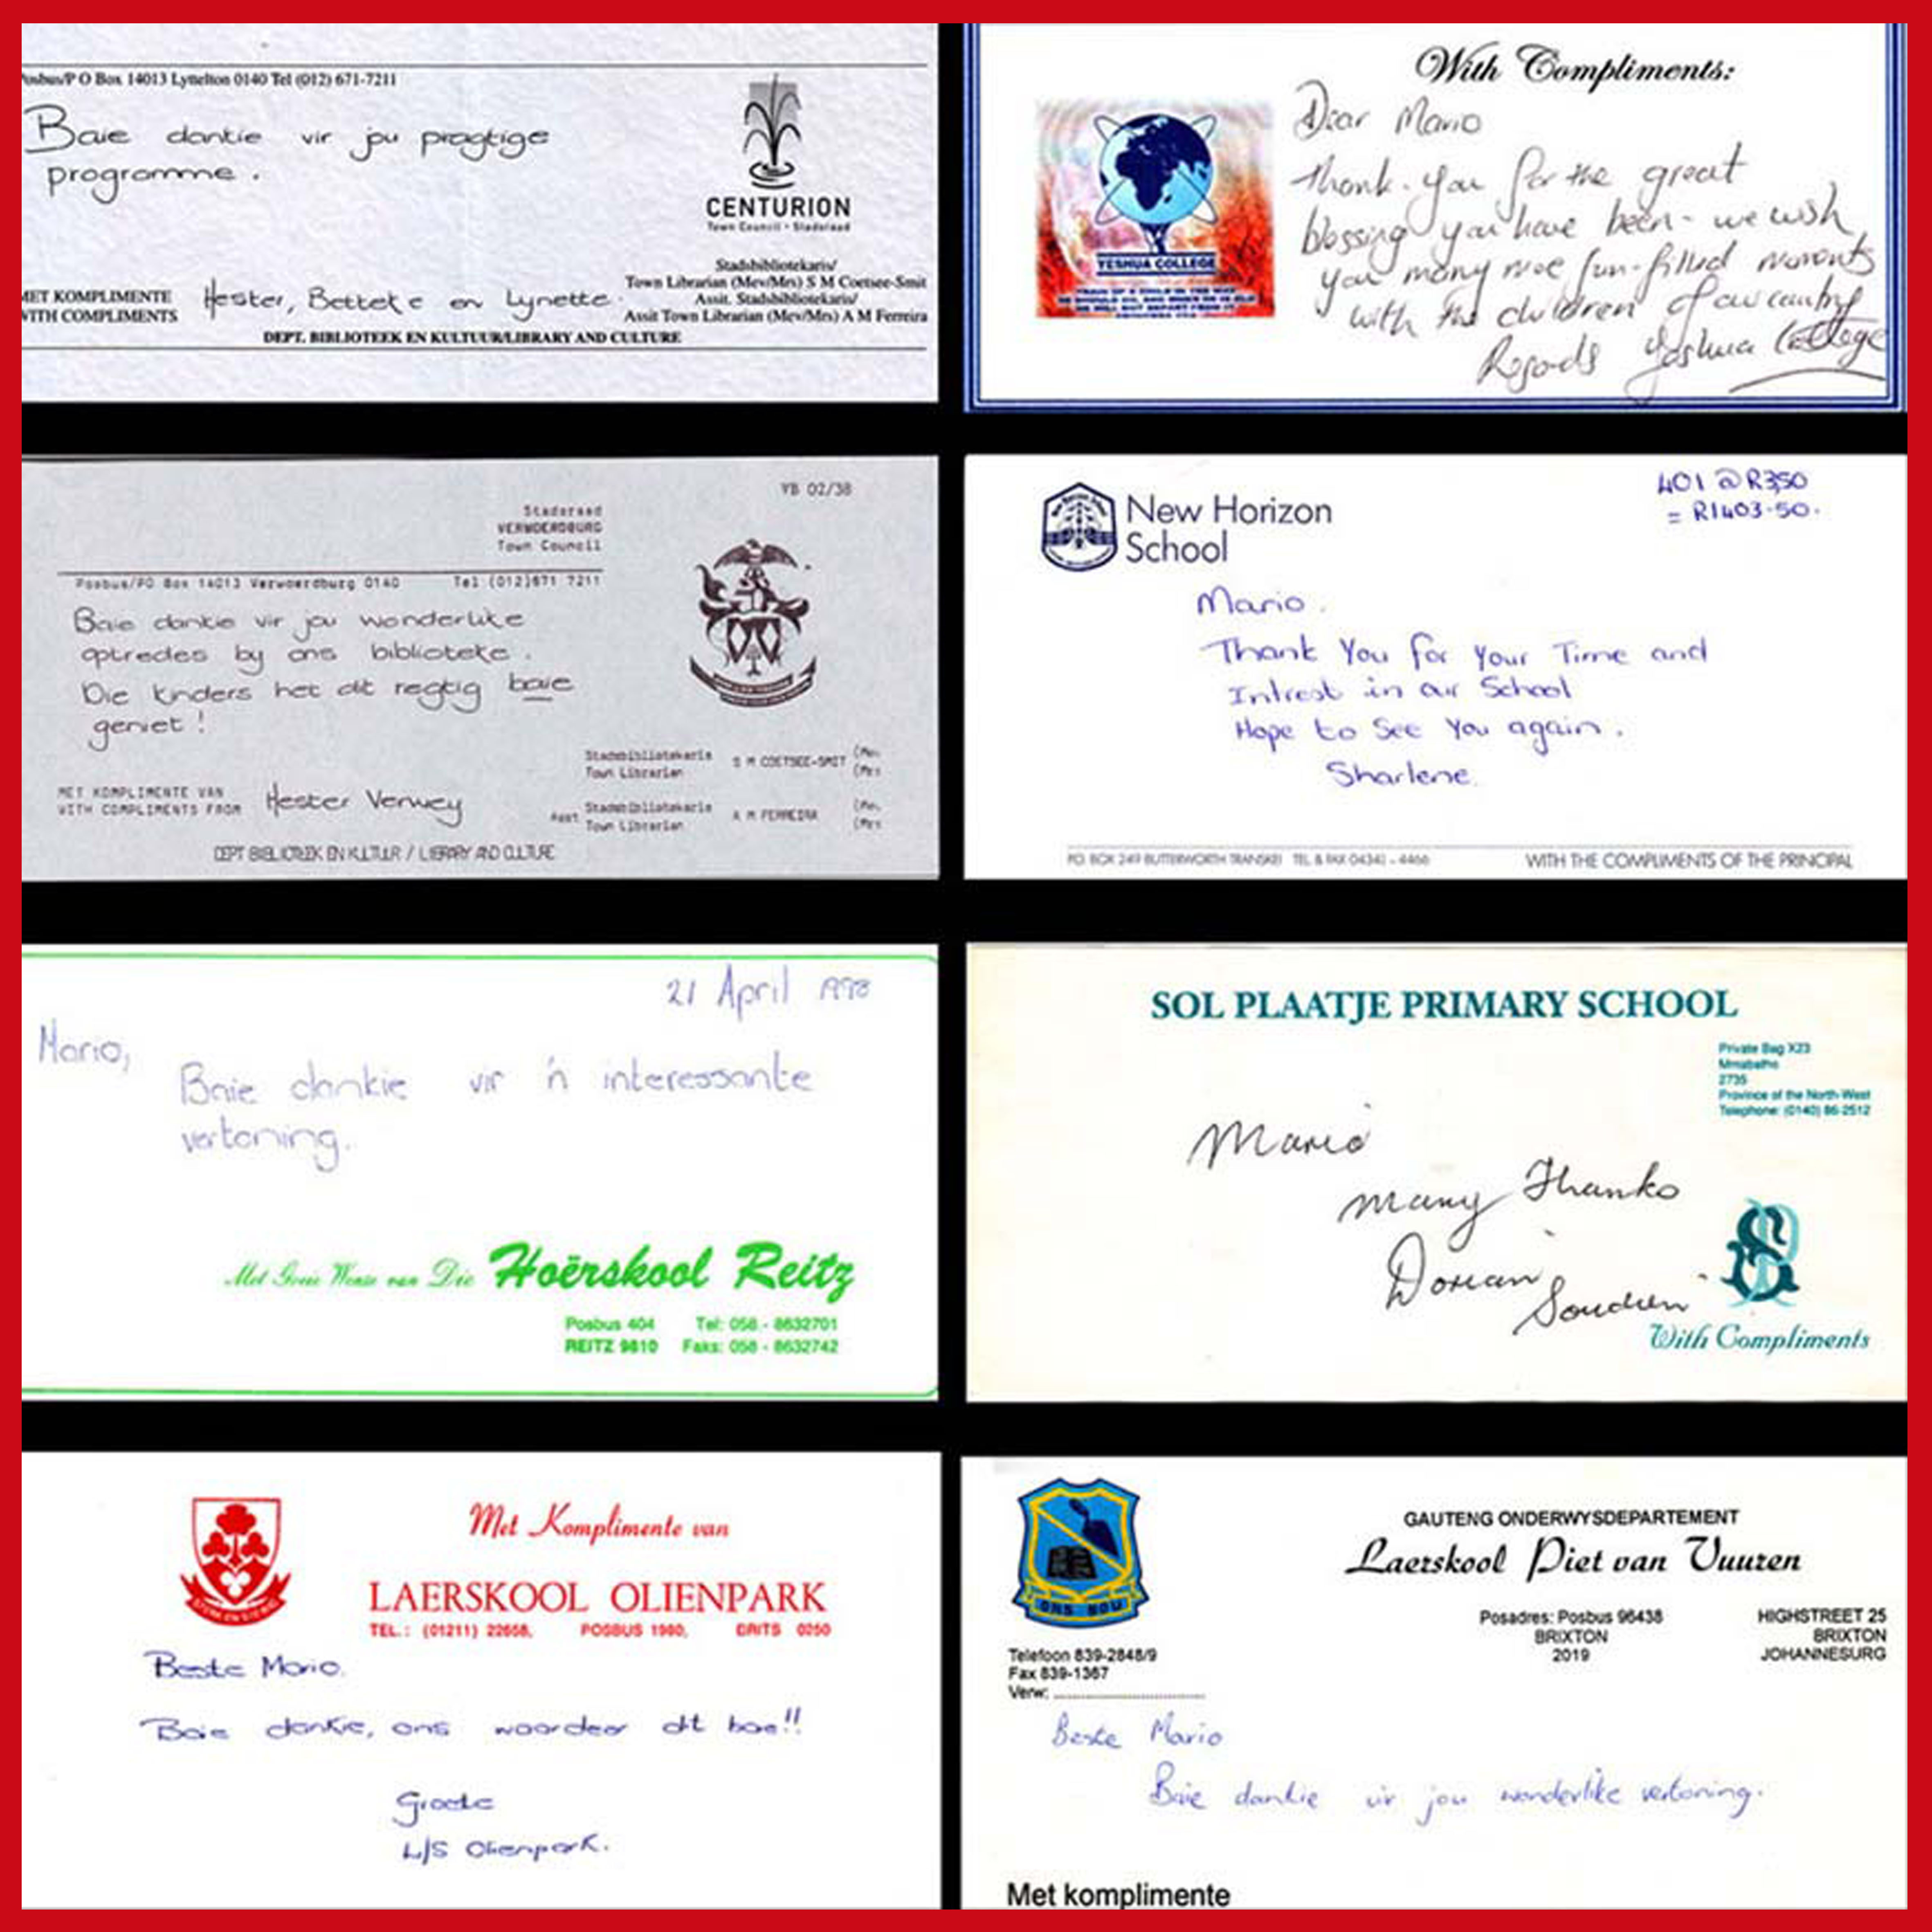 Posbus/P O Box 14013 Lyttelton 0140 Tel (012) 671-7211
Baie dankie vir jou pragtige
programme.
CENTURION
Town Council • Stadsraad
Stadsbibliotekaris/
Town Librarian (Mev/Mrs) S M Coetsee-Smit
Assit. Stadsbibliotekaris/
Assit Town Librarian (Mev/Mrs) A M Ferreira
MET KOMPLIMENTE
WITH COMPLIMENTS
Hester, Betteke en Lynette.
DEPT. BIBLIOTEEK EN KULTUUR/LIBRARY AND CULTURE
With Compliments:
YESHUA COLLEGE
TRAIN UP A CHILD IN THE WAY
HE SHOULD GO, AND WHEN HE IS OLD
HE WILL NOT DEPART FROM IT
Dear Mario
Thank-you for the great
blessing you have been - we wish
you many more fun-filled moments
with the children of our country
Regards Yeshua College
VB 02/38
Stadsraad
VERWOERDBURG
Town Council
Posbus/PO Box 14013 Verwoerdburg 0140 Tel (012)671 7211
Baie dankie vir jou wonderlike
optredes by ons biblioteke.
Die kinders het dit regtig baie
geniet!
Stadsbibliotekaris
Town Librarian
S M COETSEE-SMIT
(Mev
(Mrs
MET KOMPLIMENTE VAN
WITH COMPLIMENTS FROM
Hester Verwey
Asst
Stadsbibliotekaris
Town Librarian
A M FERREIRA
(Mev
(Mrs
DEPT BIBLIOTEEK EN KULTUUR / LIBRARY AND CULTURE
New Horizon
School
401 @ R3,50
= R1403-50.
Mario.
Thank You for Your Time and
Intrest in our School
Hope to See You again.
Sharlene.
P.O. BOX 249 BUTTERWORTH TRANSKEI TEL & FAX 04341 - 4466
WITH THE COMPLIMENTS OF THE PRINCIPAL
21 April 1998
Mario,
Baie dankie vir 'n interessante
vertoning.
Met Goeie Wense van Die Hoërskool Reitz
Posbus 404 Tel: 058 - 8632701
REITZ 9810 Faks: 058 - 8632742
SOL PLAATJE PRIMARY SCHOOL
Private Bag X23
Mmabatho
2735
Province of the North-West
Telephone: (0140) 86-2512
Mario
many Thanks
Dorian
Soudien
With Compliments
Met Komplimente van
LAERSKOOL OLIENPARK
TEL.: (01211) 22658, POSBUS 1980, BRITS 0250
Beste Mario.
Baie dankie, ons waardeer dit baie!!
Groete
L/S Olienpark.
ONS BOU
GAUTENG ONDERWYSDEPARTEMENT
Laerskool Piet van Vuuren
Posadres: Posbus 96438
BRIXTON
2019
HIGHSTREET 25
BRIXTON
JOHANNESURG
Telefoon 839-2848/9
Fax 839-1367
Verw:
Beste Mario
Baie dankie vir jou wonderlike vertoning.
Met komplimente